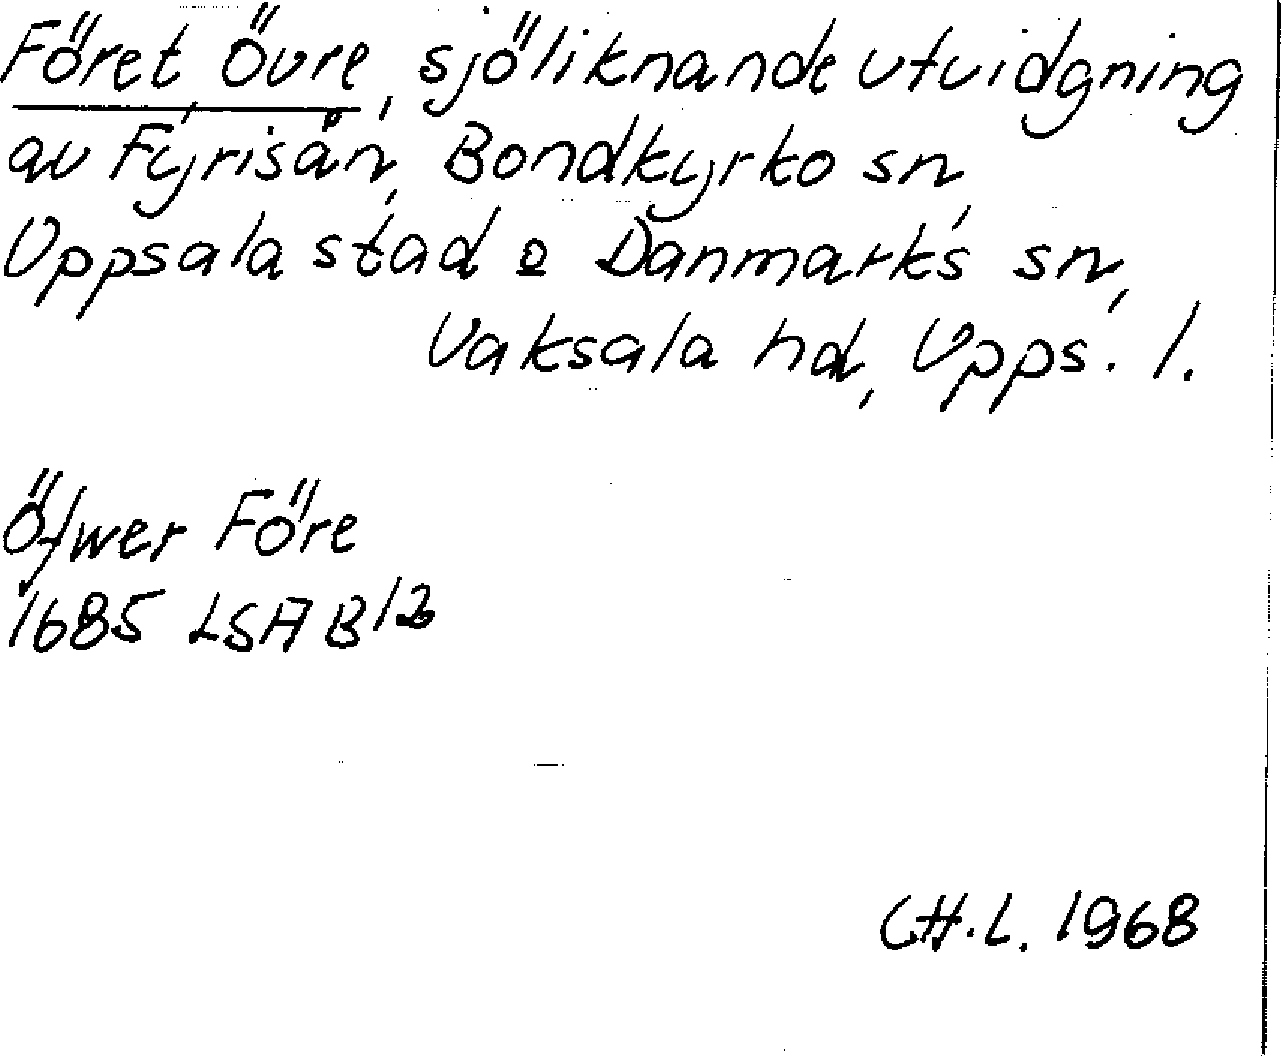 Föret, Övre, sjöliknande utvidgning
av Fyrisån, Bondkyrko sn,
Uppsala stad o Danmarks sn,
Vaksala hd, Upps. l.
Öfwer Före
1685 LSA B 12
CH.L. 1968